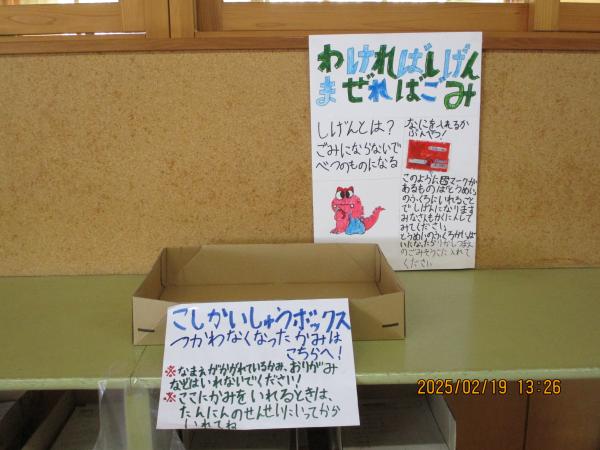 わければしげん
まぜればごみ
しげんとは?
ごみにならないで
べつのものになる
なにを入れるか
ぶんべつ!
このように図マークが
あるものはとうめい
のふくろにいれること
でしげんになります
みなさんもかくにんして
みてください
とうめいのふくろがいっぱ
のごみぞうこに入れて
ください
こしかいしゅうボックス
つかわなくなったかみは
こちらへ!
※なまえがかかれているかみ、おりがみ
などはいれないでください!
※ここにかみをいれるときは、
たんにんのせんせいにいってから
いれてね
2025/02/19 13:26